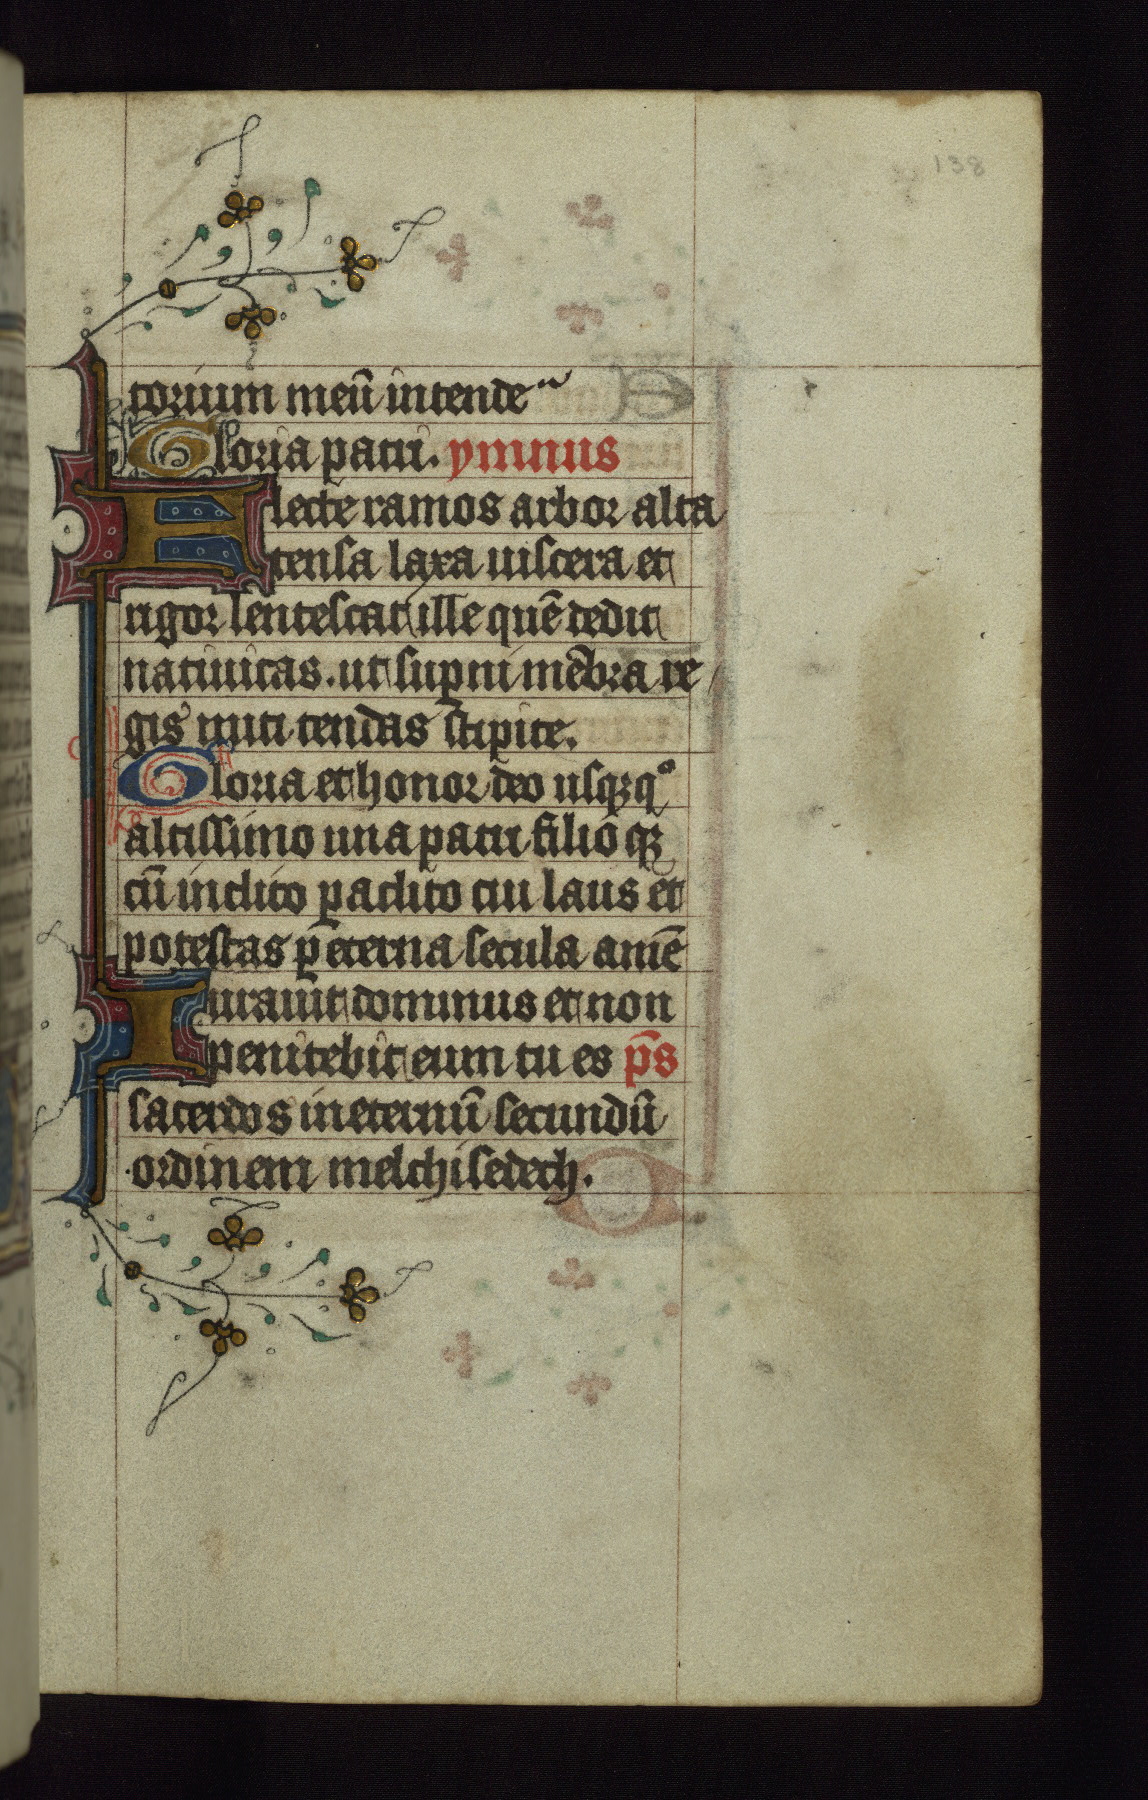 138
torium meū intende
Gloria patri. ymnus
Flecte ramos arbor alta
tensa laxa uiscera et
rigor lentescat ille quē dedit
natiuitas. ut supni mēbra re
gis miti tendas stipite.
Gloria et honor deo usqꝫqͦ
altissimo una patri filioqꝫ
cū inclito ꝑaclito cui laus et
potestas ꝑ eterna secula amē
Iurauit dominus et non
penitebit eum tu es p̄s
sacerdos in eternū secundū
ordinem melchisedech.